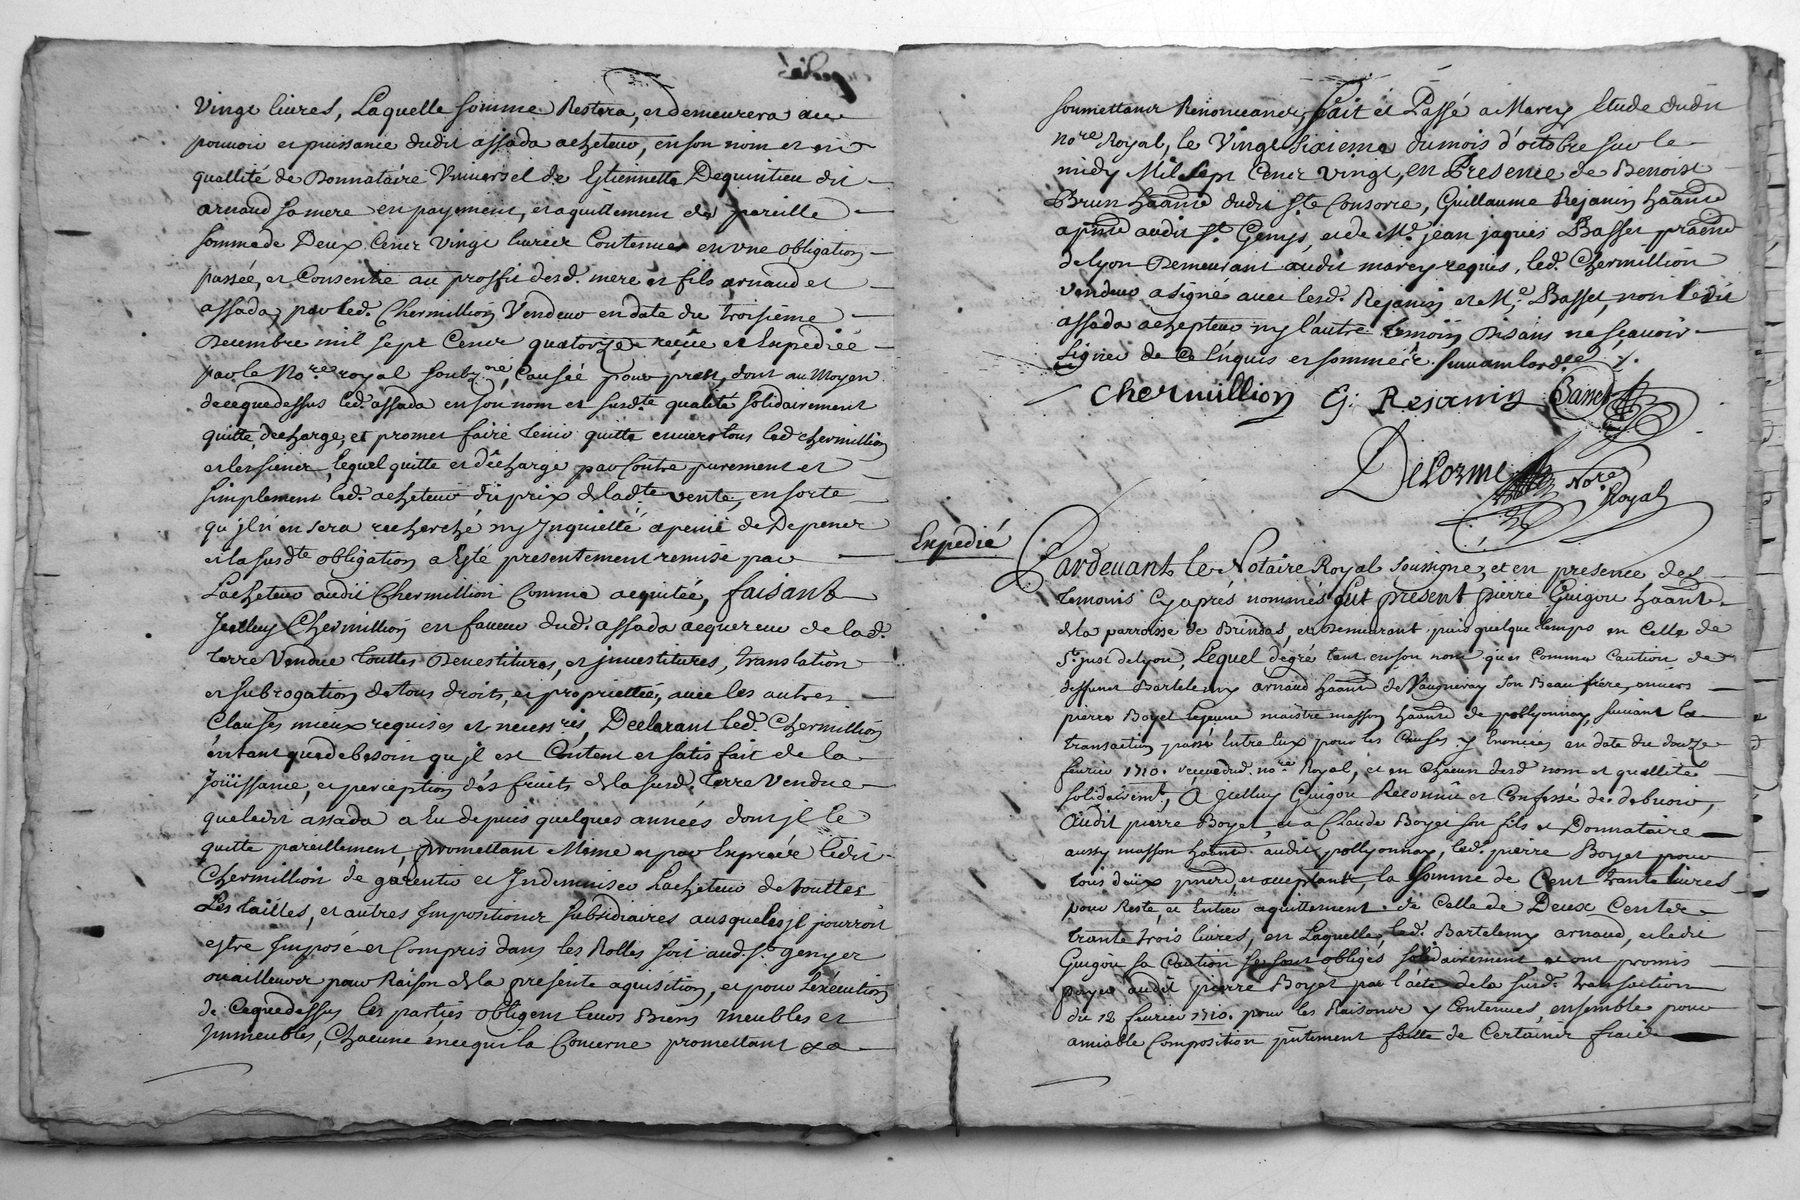 Vingt livres, Laquelle somme Restera, et demeurera au
pouvoir et puissance dudit assada acheteur, en son nom et en
quallité de Donnataire Vniversel de Estiennette Dequintieu dit
arnaud sa mere en payement, et aquittement de pareille
somme de Deux Cent Vingt livres Contenues en vne obligation
passée, et Consentie au proffit desd. mere et fils arnaud et
assada par led. Chermillion Vendeur en date du troisième
Decembre mil sept Cent quatorze reçüe et Expediée
par le Nore royal soubzné, Causée pour prest, dont au Moyen
de ceque dessus led. assada en son nom et susdte qualité solidairement
quitte, decharge, et promet faire tenir quitte envers tous led chermillion
et les siens, lequel quitte et décharge par Contre purement et
simplement led. acheteur du prix de ladte vente, en sorte
qu'jl n'en sera recherché ny Jnquietté a peine de Depens
et la susdte obligation a Esté presentement remise par
L'acheteur audit Chermillion Comme acquitée, faisant
Jcelluy Chermillion en faveur dud. assada acquereur de lad.
terre Vendue touttes Devestitures, et jnvestitures, translation
et subrogation de tous droits, et proprietté, avec les autres
Clauses mieux requises et necessres, Declarant led. Chermillion
en tant que de besoin qu'jl est Content et satisfait de la
Joüissance, et perception des fruits de la susd. terre Vendue
que ledit assada a Eu depuis quelques années dont jl le
quitte pareillement, promettant Meme et par Exprés ledit
Chermillion de garentir et Jndemniser L'acheteur de touttes
Les tailles, et autres Jmpositions subsidiaires ausqueles jl pourroit
estre Jmposé et Compris dans les Rolles soit aud. St. genys et
ou ailleurs pour Raison de la presente aquisition, et pour L'exécution
de Ceque dessus les parties obligent leurs Biens meubles et
Jmmeubles, Chacune en ce qui la Concerne promettant &a
soumettant Renonceant, fait et Passé a Marcy Etude dudit
Nore Royal, le Vingt sixieme du mois d'octobre sur le
midy Mil sept Cent vingt, en Presence de Benoist
Brun haant dudit Ste Consorce, Guillaume Rejanin haant
audit St. Genys, et de Me. jean jaques Basset
de lyon Demeurant audit marcy requis, led. Chermillion
vendeur a signé avec lesd. Rejanin et Me. Basset, non ledit
assada achepteur ny l'autre temoin Disans ne sçavoir
signer de Ce Enquis et sommés suivant lordce /.
Chermillion G: Rejanin Basset
Delorme Nore
Royal
Expedié
Pardevant le Notaire Royal soussigné, et en presence des
temoins Cy après nommés fut present pierre Guigou haant
de la parroisse de Brindas, et demeurant puis quelque temps en Celle de
St. just de lyon, Lequel degré tant en son nom qu'es Comme Caution de
deffunt Bartelemy arnaud haant de Vaugneray son Beau frere, envers
pierre Boyet lejeune maitre masson haant de pollyonnay, suivant la
transaction passé Entre Eux pour les Causes y Enoncées en date du douze
fevrier 1710. receue dud. nore Royal, et en Chacun desd nom et quallité
solidairemt, a Jcelluy Guigou Reconnu et Confessé de debvoir,
Audit pierre Boyet, et a Claude Boyet son fils et Donnataire
aussy masson haant audit pollyonnay, led. pierre Boyet pour
tous deux pnt, et acceptant, la somme de Cent trante livres
pour Reste, et Entier aquittement de Celle de Deux Cents
trante trois livres, en Laquelle, led. Bartelemy arnaud, et ledit
Guigou sa Caution se sont obligés solidairement et ont promis
payer audit pierre Boyet par l'acte de la susd. transaction
du 12 fevrier 1710. pour les Raisons y Contenues, ensemble pour
amiable Composition pntement faitte de Certains fraix